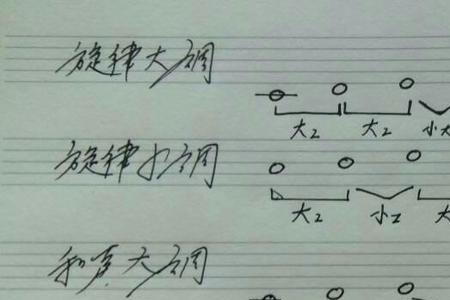 旋律大调
大2 大2 小
旋律小调
大2 小2 大
和声大调